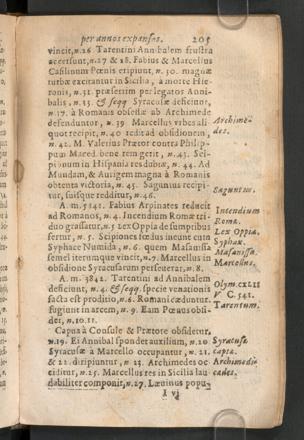 per annos expansæ. 205
vincit, n.26 Tarentini Annibalem frustra
accersunt, n.27 & 28. Fabius & Marcellus
Casilinum Pœnis eripiunt, n. 30. magnæ
turbæ excitantur in Sicilia, à morte Hie-
ronis, n.31. præsertim per legatos Anni-
balis, n.33. & seqq Syracusæ deficiunt,
n.37. à Romanis obsessæ ab Archimede
defenduntur, n. 39 Marcellus urbes ali
quot recipit, n.40 redit ad obsidionem,
n. 42. M. Valerius Prætor contra Philip-
pum Maced. bene rem gerit, n. 43. Sci-
pionum in Hispania res dubiæ, n. 44. Ad
Mundam, & Aurigem magna à Romanis
obtenta victoria, n. 45. Saguntus recipi-
tur, suisque redditur, n.46.
A. m. 3841. Fabius Arpinates reducit
ad Romanos, n. 4. Incendium Romæ tri-
duo grassatur, n.5 Lex Oppia de sumptibus
fertur, n. 5. Scipiones fœdus ineunt cum
Syphace Numida, n.6. quem Masanissa
semel iterumque vincit, n.7. Marcellus in
obsidione Syracusarum perseverat, n.8.
A. m. 3842. Tarentini ad Annibalem
deficiunt, n. 4. & seqq specie venationis
facta est proditio, n.6. Romani cæduntur.
fugiunt in arcem, n. 9. Eam Pœnus obsi-
det, n.10.11.
Capua à Consule & Prætore obsidetur,
n.19. Ei Annibal spondet auxilium, n.20
Syracusæ à Marcello occupantur, n. 21.
& 22. diripiuntur, n. 23. Archimedes oc-
ciditur, n.25. Marcellus res in Sicilia lau-
dabiliter componit, n.27. Lævinus popu-
Archime-
des.
Saguntus.
Incendium
Romæ.
Lex Oppia.
Syphax.
Masanissa.
Marcellus.
Olym.CXLII
V C. 542.
Tarentum.
Syracusæ
captæ.
Archimedis
cædes.